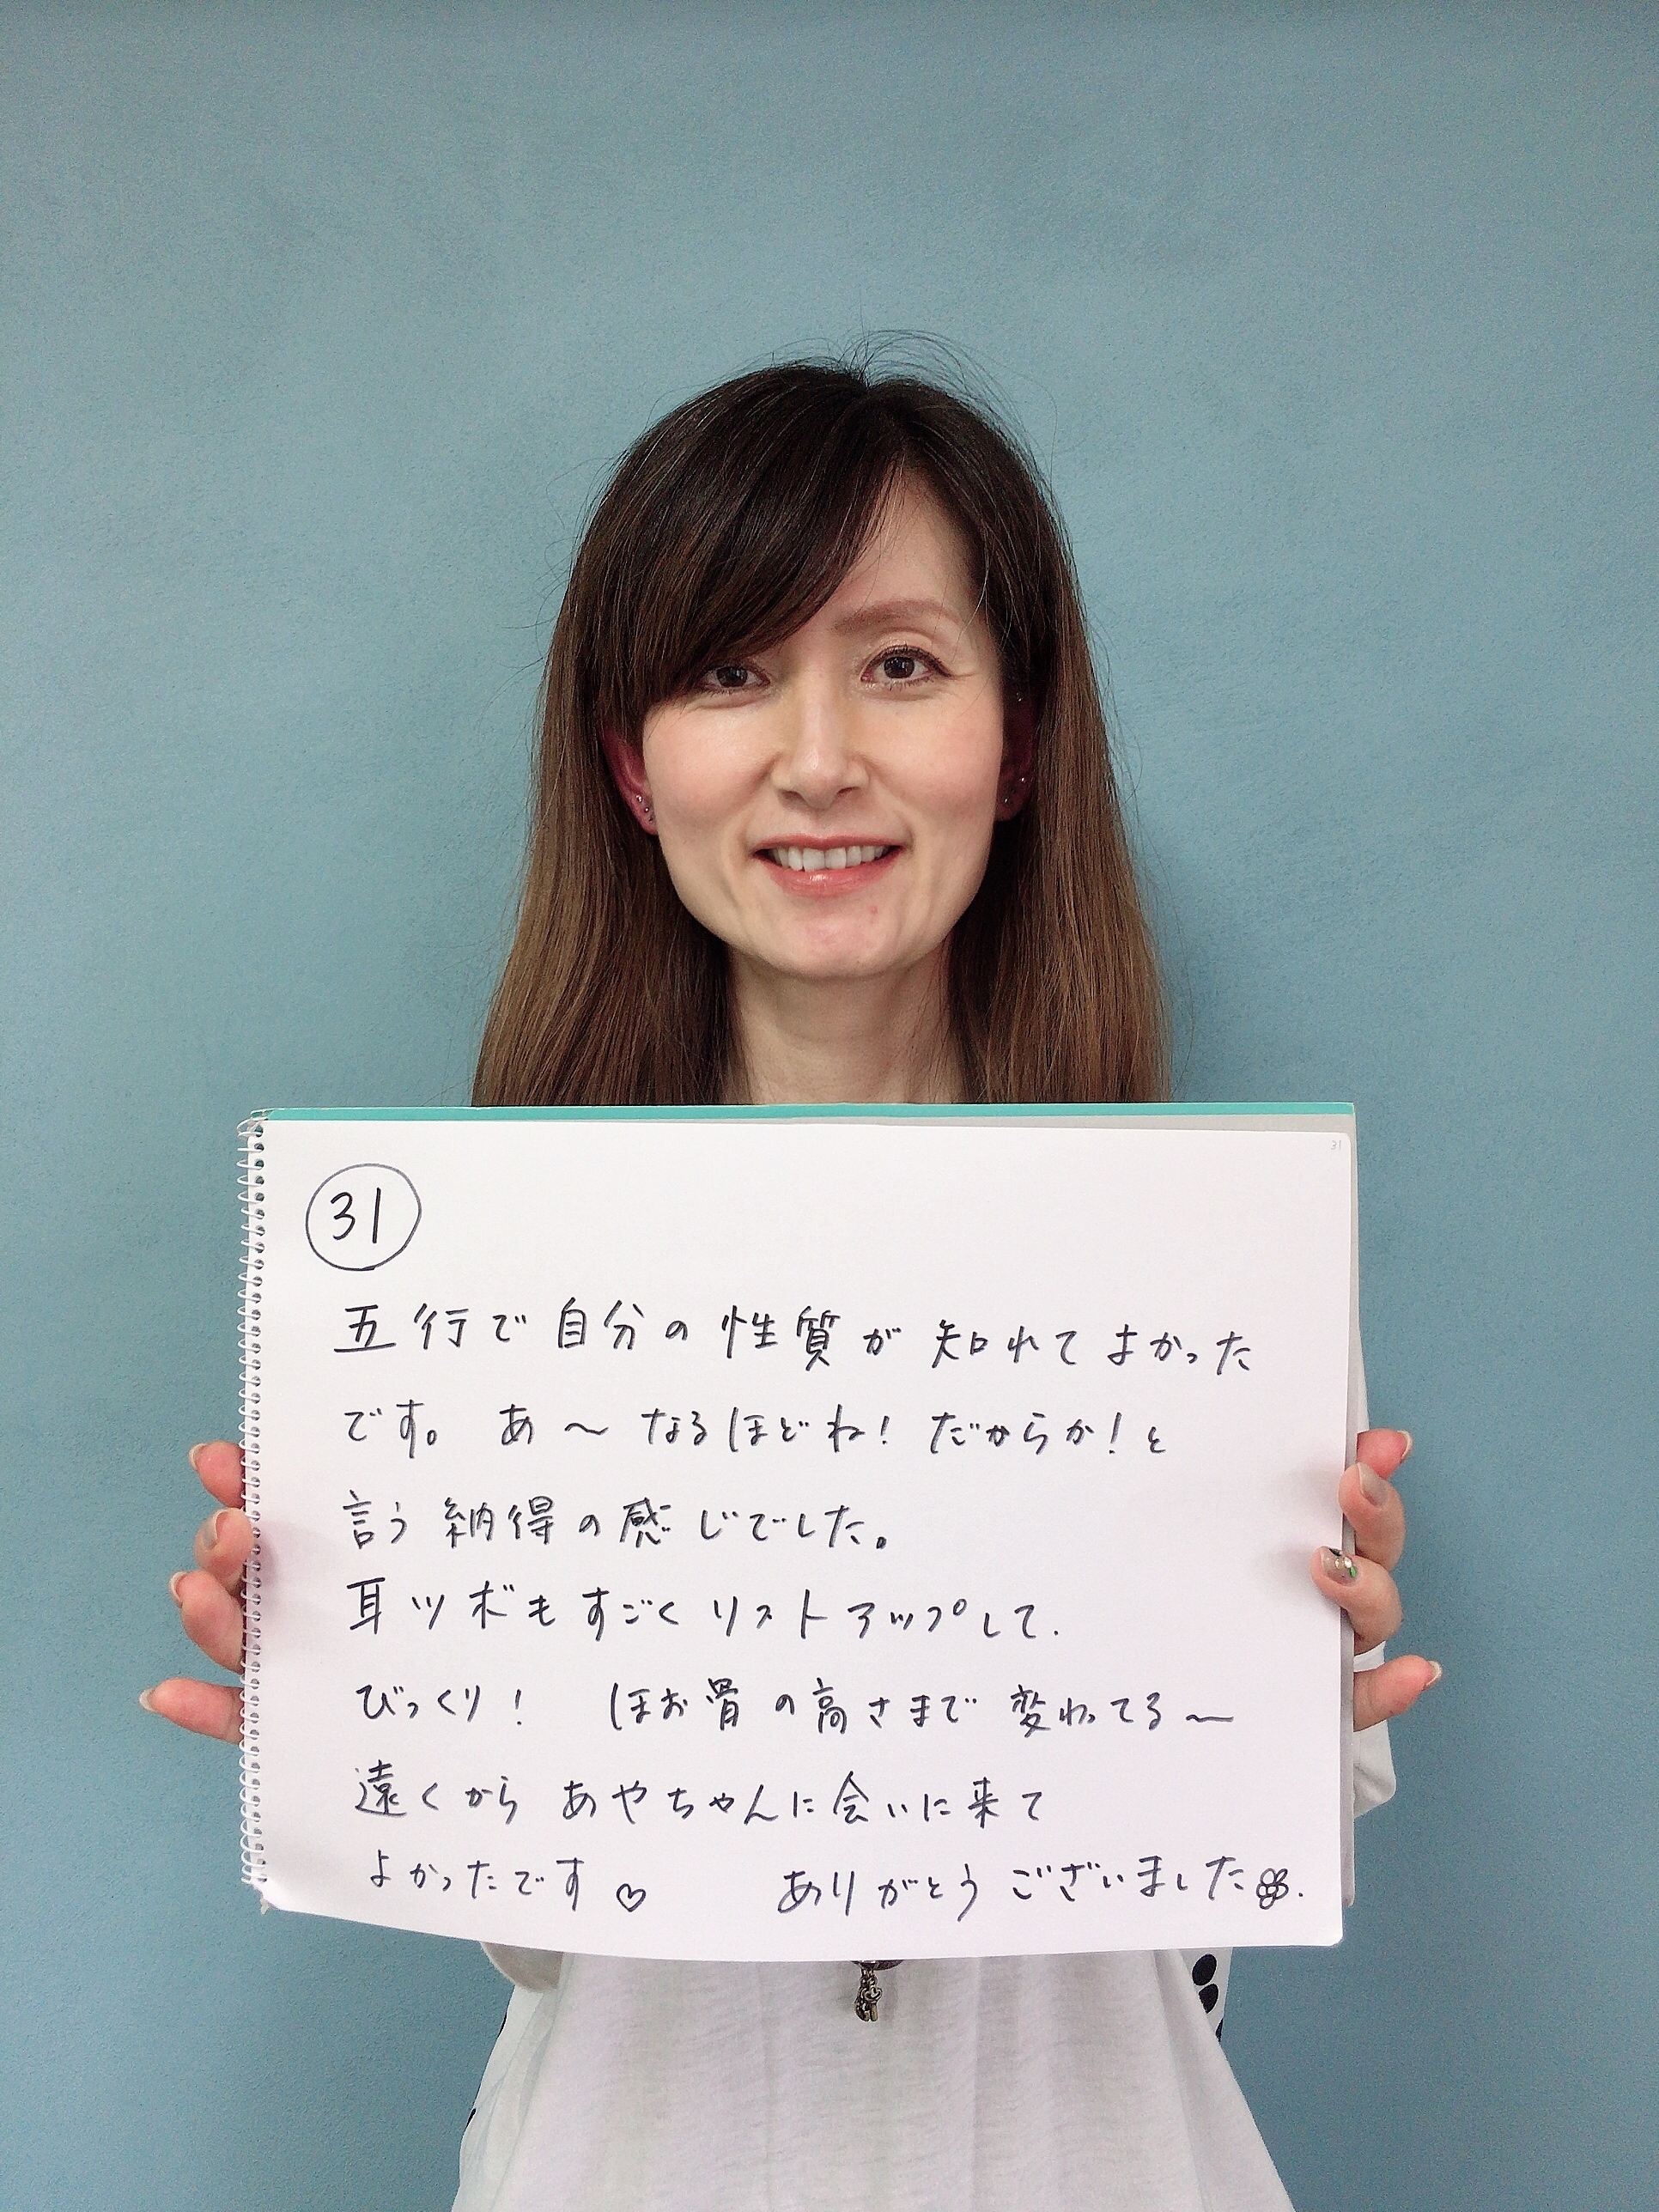 31
31
五行で自分の性質が知れてよかった
です。 あ〜なるほどね! だからか!と
言う納得の感じでした。
耳ツボもすごくリストアップして.
びっくり! ほお骨の高さまで変わってる〜
遠くからあやちゃんに会いに来て
よかったです♡ ありがとうございました.